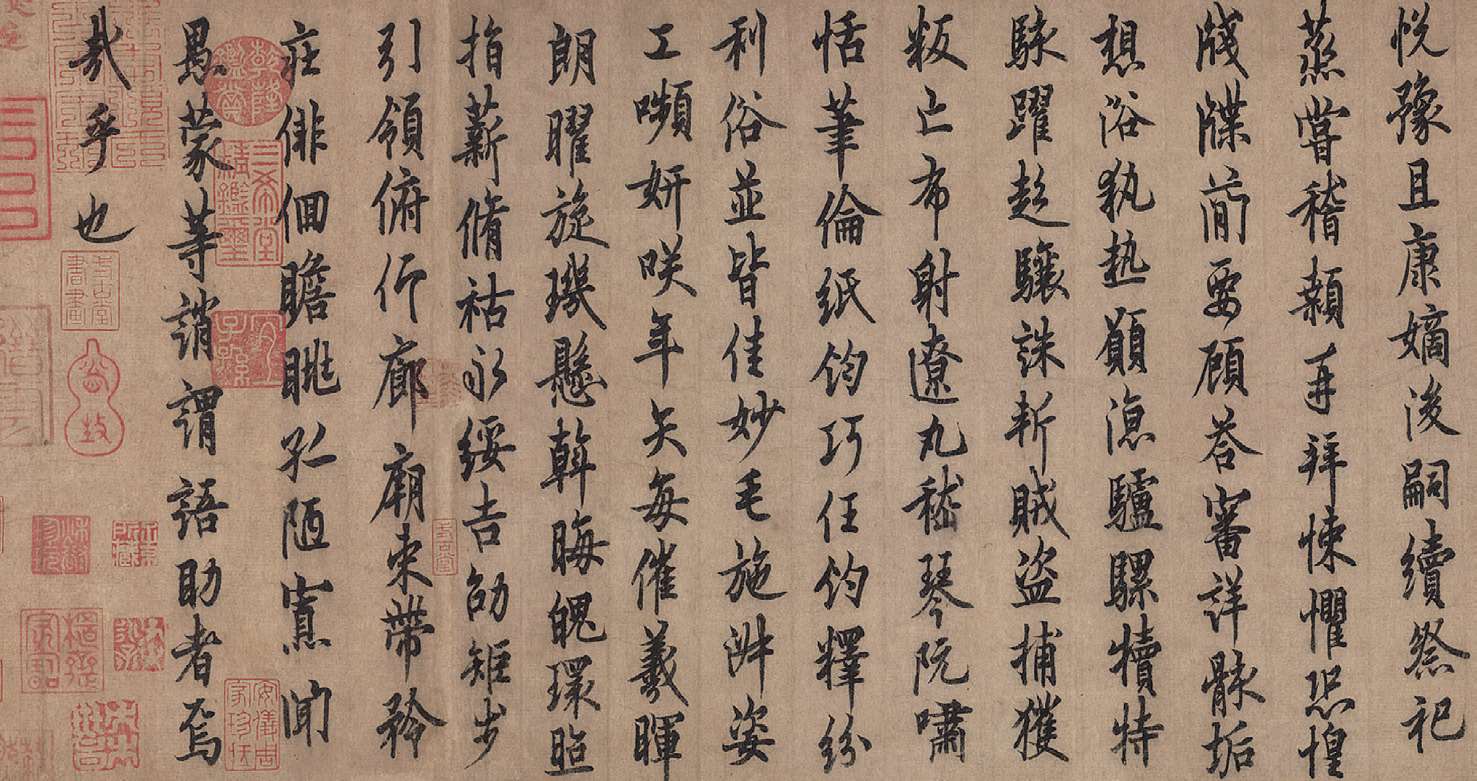 悦豫且康嫡後嗣續祭祀
蒸嘗稽顙再拜悚懼恐惶
牋牒簡要顧荅審詳骸垢
想浴執熱願涼驢騾犢特
駭躍超驤誅斬賊盜捕獲
叛亡布射遼丸嵇琴阮嘯
恬筆倫紙鈞巧任釣釋紛
利俗並皆佳妙毛施淑姿
工嚬妍咲年矢每催羲暉
朗曜旋璣懸斡晦魄環照
指薪脩祜永綏吉劭矩步
引領俯仰廊廟束帶矜
莊俳佪瞻眺孤陋寡聞
愚蒙等誚謂語助者焉
哉乎也
乾隆鑑賞
三希堂精鑑璽
宜子孫
安儀周家珍藏